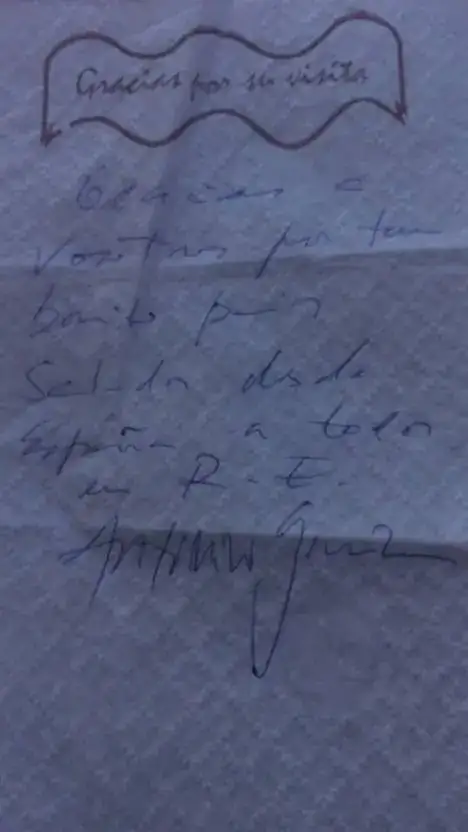 Gracias por su visita
Gracias a
Vosotros por tan
bonito país
Saludos desde
España a todos
en R. E.
Antonio